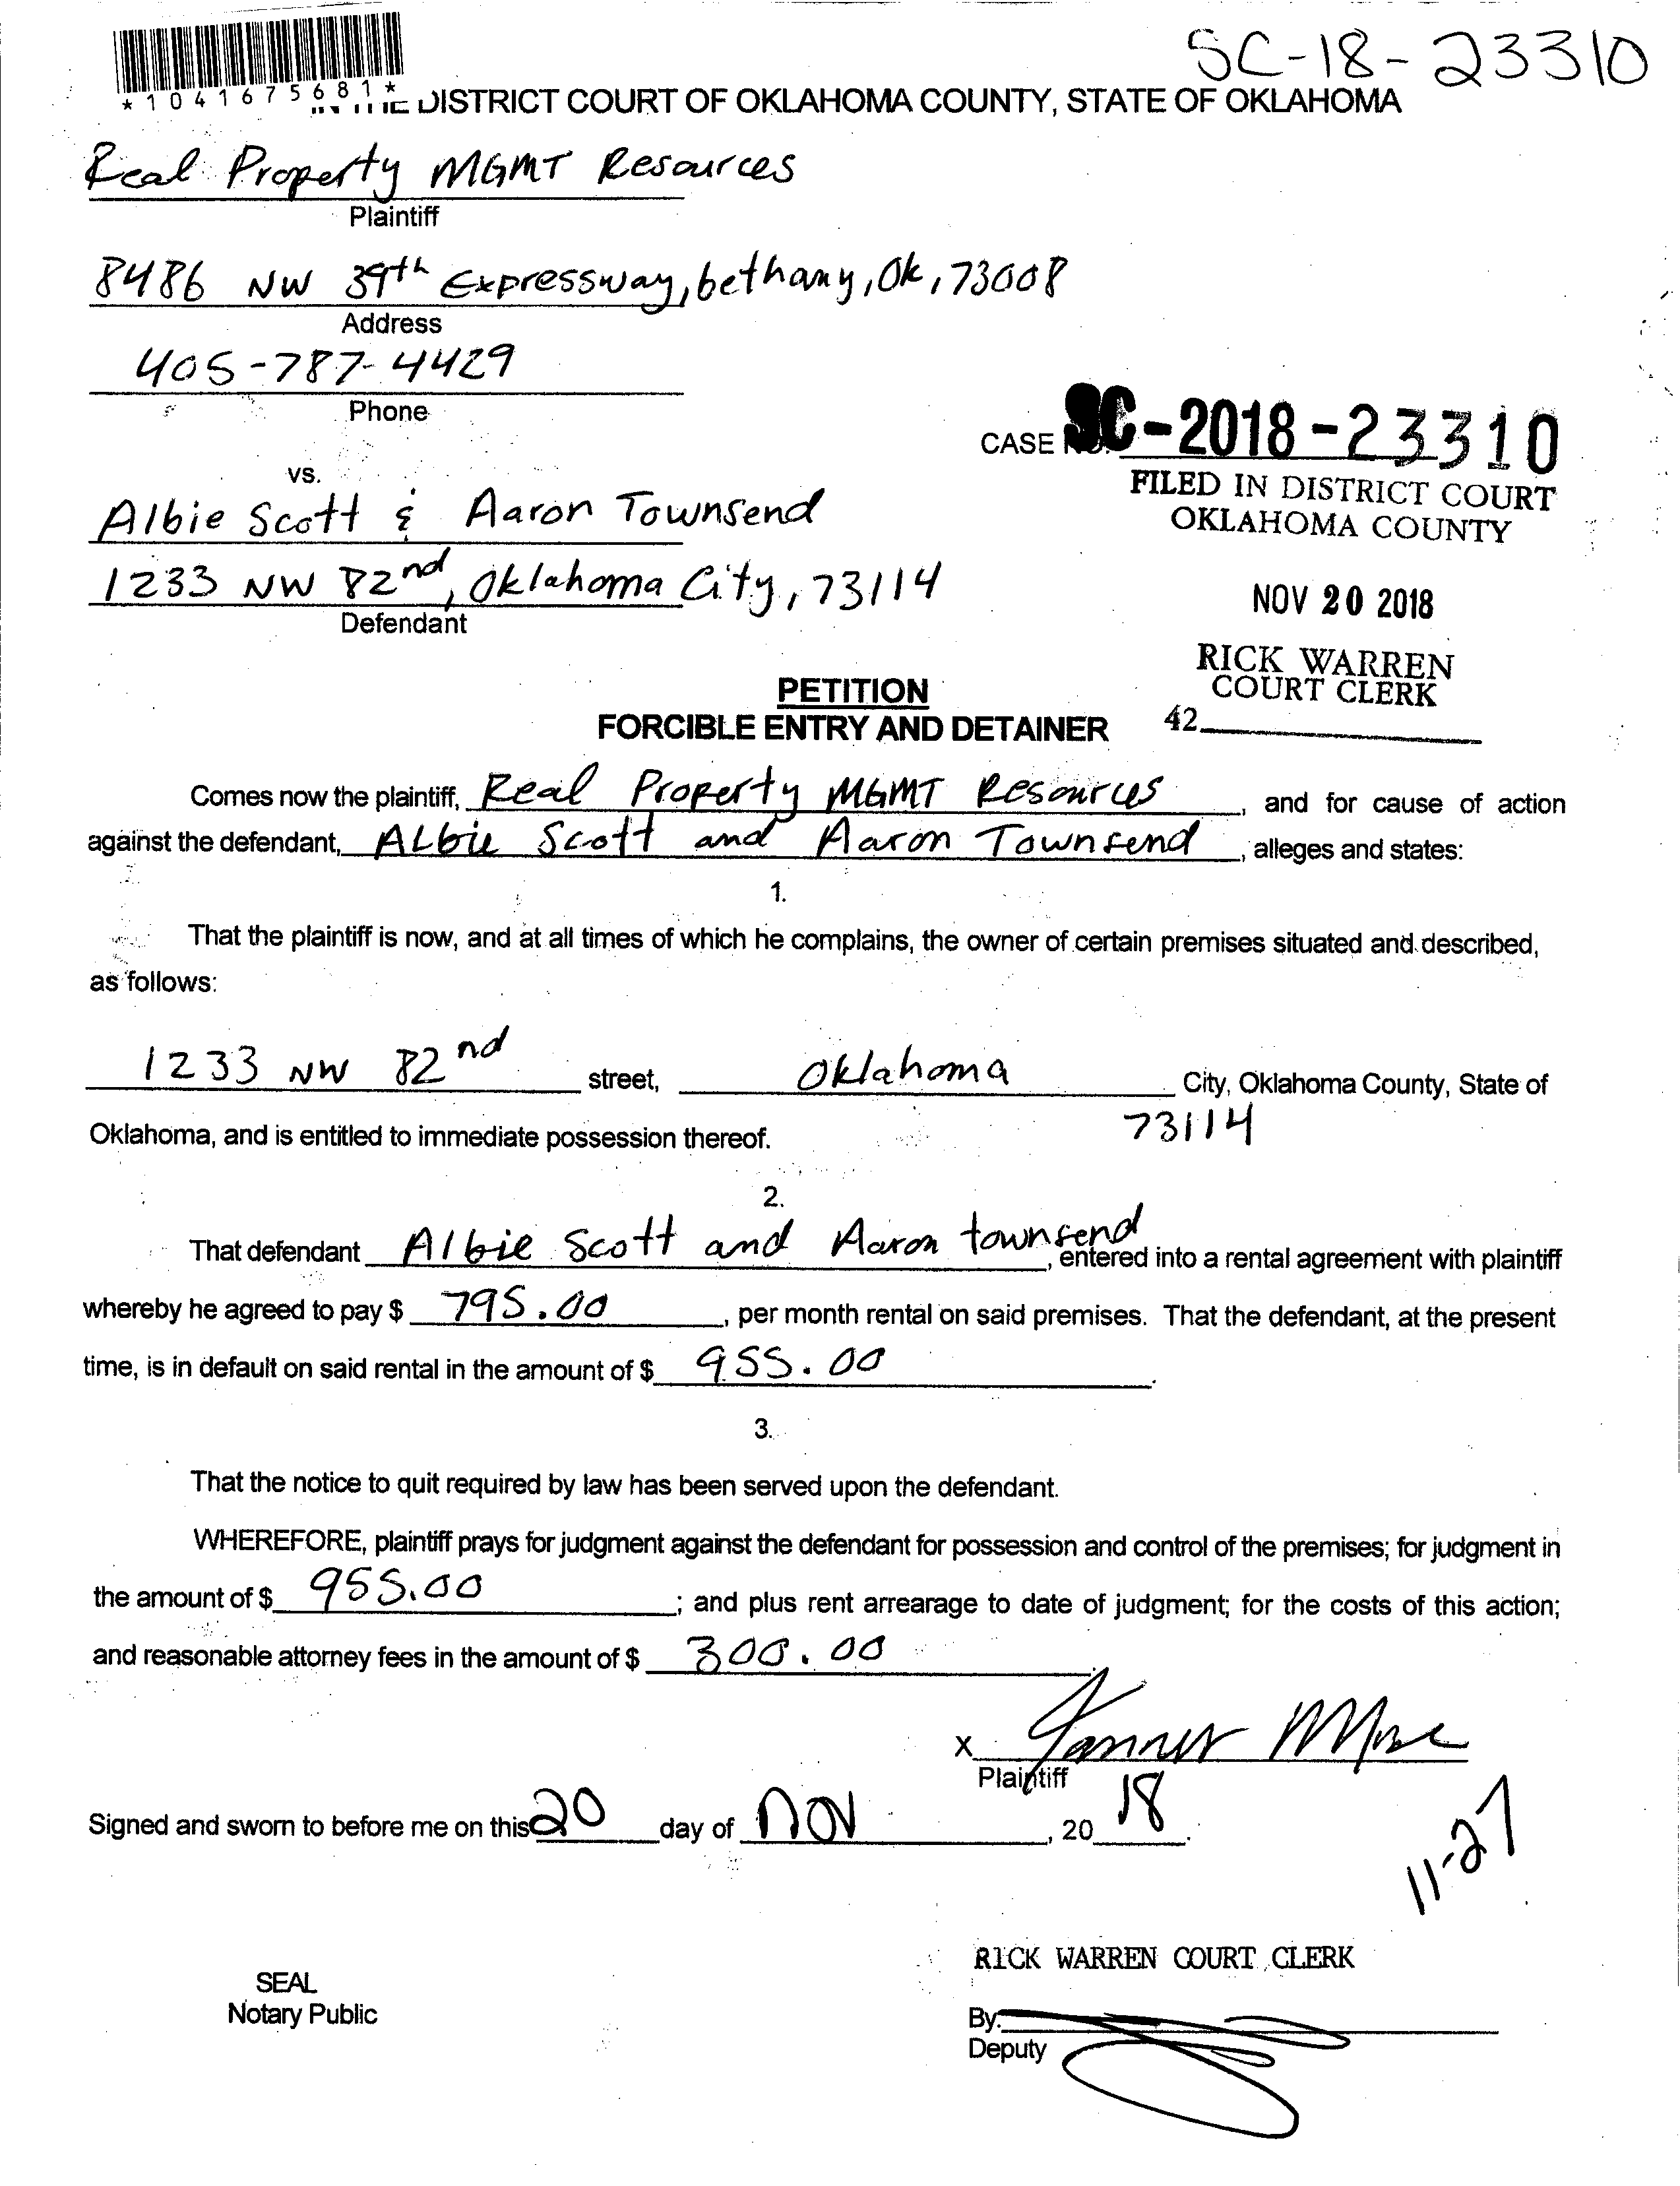 SC-18-23310
*1041675681*
IN THE DISTRICT COURT OF OKLAHOMA COUNTY, STATE OF OKLAHOMA
Real Property MGMT Resources
Plaintiff
8486 NW 39th Expressway, bethany, Ok, 73008
Address
405-787-4429
Phone
CASE NO. SC-2018-23310
FILED IN DISTRICT COURT
OKLAHOMA COUNTY
vs.
Albie Scott & Aaron Townsend
1233 NW 82nd, Oklahoma City, 73114
Defendant
NOV 20 2018
RICK WARREN
COURT CLERK
42
PETITION
FORCIBLE ENTRY AND DETAINER
Comes now the plaintiff, Real Property MGMT Resources, and for cause of action
against the defendant, Albie Scott and Aaron Townsend, alleges and states:
1.
That the plaintiff is now, and at all times of which he complains, the owner of certain premises situated and described,
as follows:
1233 NW 82nd street, Oklahoma City, Oklahoma County, State of
Oklahoma, and is entitled to immediate possession thereof. 73114
2.
That defendant Albie Scott and Aaron townsend, entered into a rental agreement with plaintiff
whereby he agreed to pay $ 795.00, per month rental on said premises. That the defendant, at the present
time, is in default on said rental in the amount of $ 955.00.
3.
That the notice to quit required by law has been served upon the defendant.
WHEREFORE, plaintiff prays for judgment against the defendant for possession and control of the premises; for judgment in
the amount of $ 955.00; and plus rent arrearage to date of judgment; for the costs of this action;
and reasonable attorney fees in the amount of $ 300.00.
X Tanner
Plaintiff
Signed and sworn to before me on this 20 day of NOV, 2018.
11-27
RICK WARREN COURT CLERK
SEAL
Notary Public
By:
Deputy